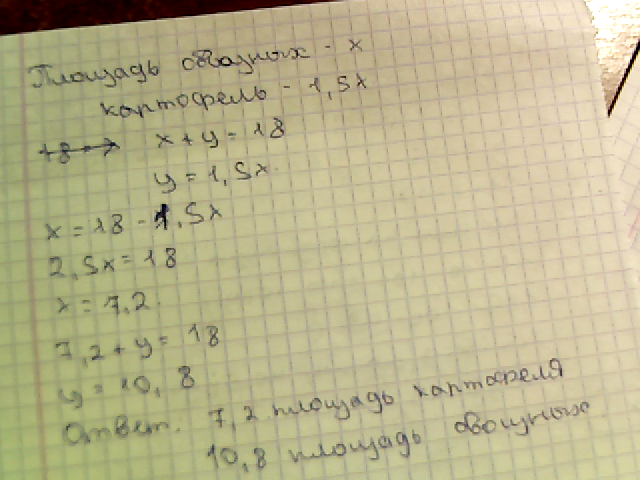 Площадь овощных - x
картофель - 1,5x
x + y = 18
y = 1,5x
x = 18 - 1,5x
2,5x = 18
x = 7,2
7,2 + y = 18
y = 10,8
Ответ. 7,2 площадь картофеля
10,8 площадь овощных